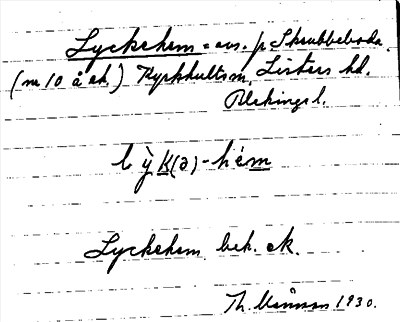 Lyckehem = avs. p. Skrubbeboda
(m 10 å ek.) Kyrkhults sn. Listers hd.
Blekinge l.
lỳk(ə)-hém
Lyckehem bek. ek.
Th. Månsson 1930.